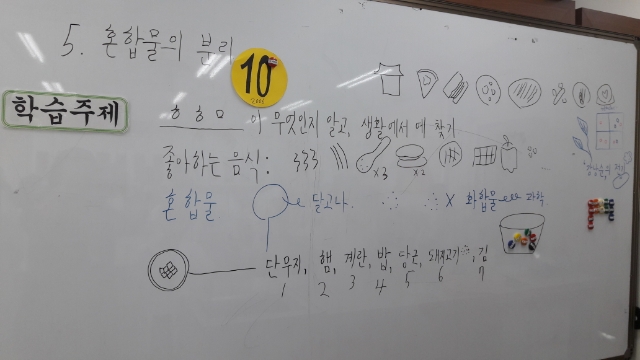 5. 혼합물의 분리
10
학습주제
ㅎㅎㅁ 이 무엇인지 알고, 생활에서 예 찾기
좋아하는 음식:
x3
x2
혼합물
달고나.
X 화합물
과학
단무지, 햄, 계란, 밥, 당근, 돼지고기, 김
1 2 3 4 5 6 7